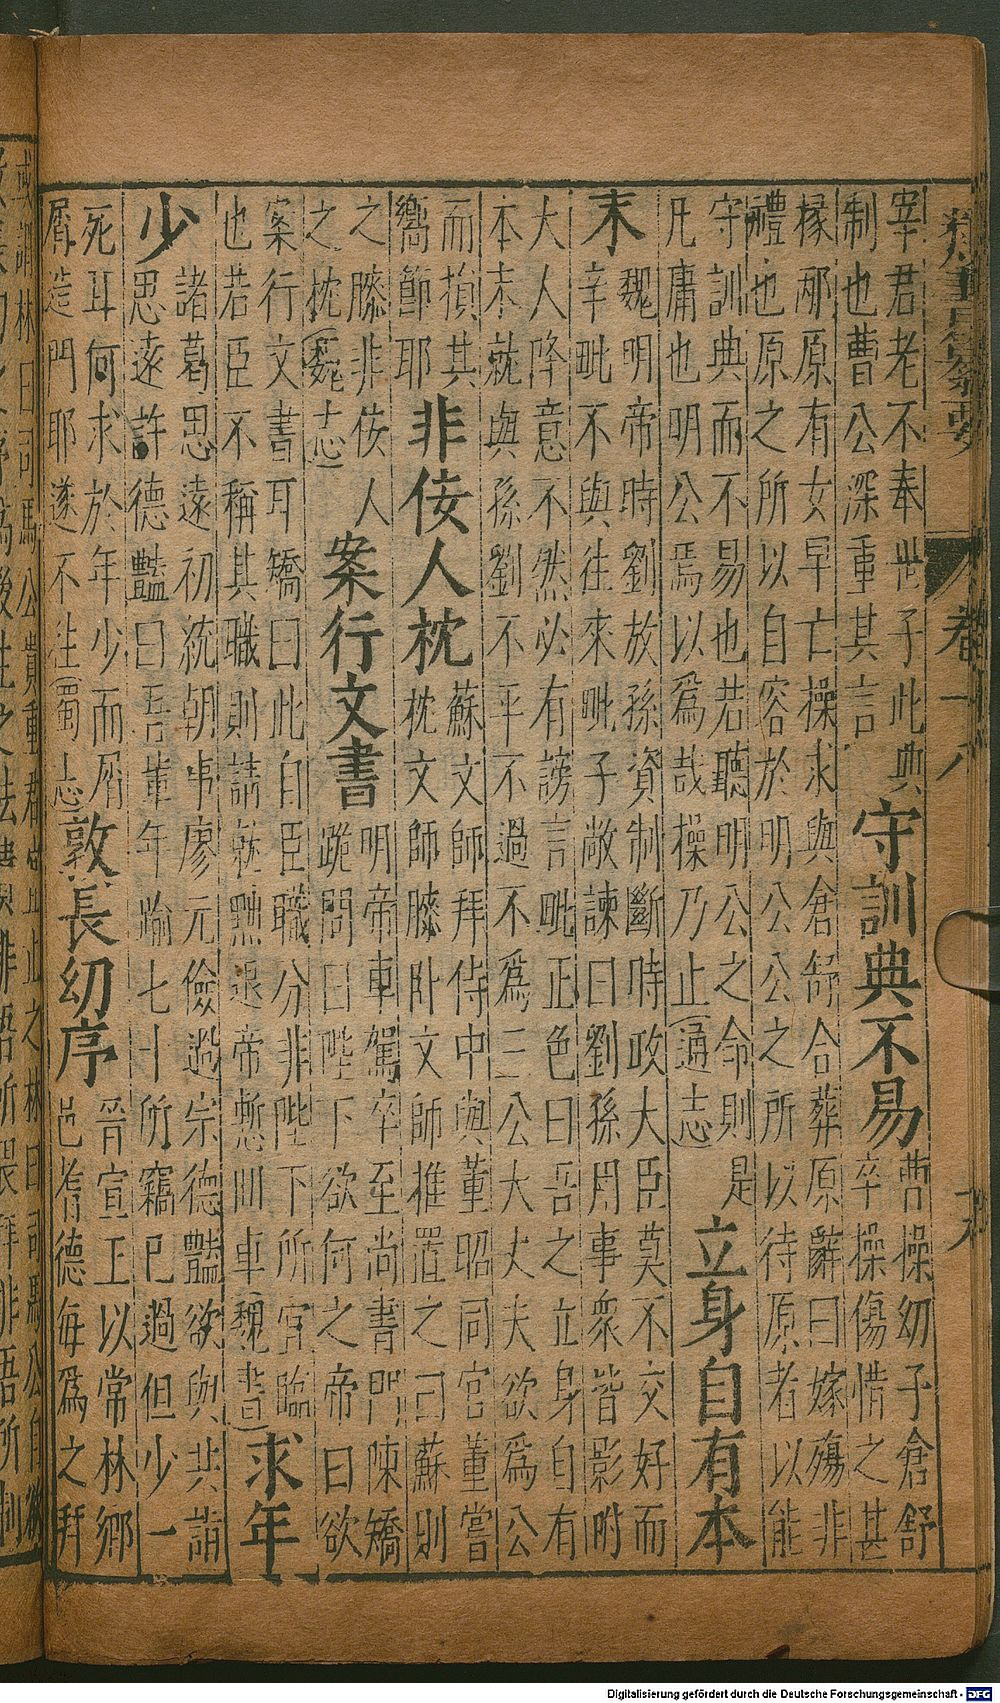 卷十八
宰君老不奉世子此典
制也曹公深重其言
守訓典不易
曹操幼子倉舒
卒操傷惜之甚
掾邴原有女早亡操求與倉舒合葬原辭曰嫁殤非
禮也原之所以自容於明公公之所以待原者以能
守訓典而不易也若聽明公之命則是
凡庸也明公焉以爲哉操乃止(通志
立身自有本
末
魏明帝時劉放孫資制斷時政大臣莫不交好而
辛毗不與往來毗子敞諫曰劉孫用事衆皆影附
大人降意不然必有謗言毗正色曰吾之立身自有
本末就與孫劉不平不過不爲三公大丈夫欲爲公
而損其
嚮節耶
非佞人枕
蘇文師拜侍中與董昭同官董嘗
枕文師膝卧文師推置之曰蘇則
之膝非佞人
之枕(魏志)
案行文書
明帝車駕卒至尚書門陳矯
跪問曰陛下欲何之帝曰欲
案行文書耳矯曰此自臣職分非陛下所宜臨
也若臣不稱其職則請就黜退帝慙回車魏書)
求年
少
諸葛思遠初統朝事廖元儉過宗德豔欲與共詣
思遠許德豔曰吾輩年踰七十所竊已過但少一
死耳何求於年少而屑
屑造門耶遂不往(蜀志)
敦長幼序
晉宣王以常林鄉
邑耆德每爲之拜
Digitalisierung gefördert durch die Deutsche Forschungsgemeinschaft - DFG